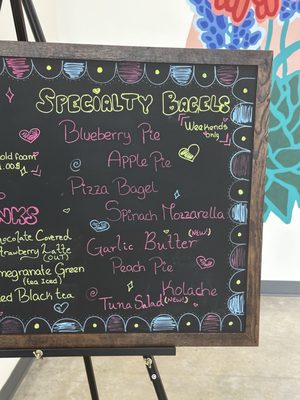 Specialty Bagels
"Weekends only"
Blueberry Pie
old foam
.00
Apple Pie
Pizza Bagel
Spinach Mozzarella
NKS
Garlic Butter (New)
ocolate Covered
trawberry Latte
(OUT)
Peach Pie
megranate Green
(tea Iced)
Kolache
ed Black tea
Tuna Salad (New)